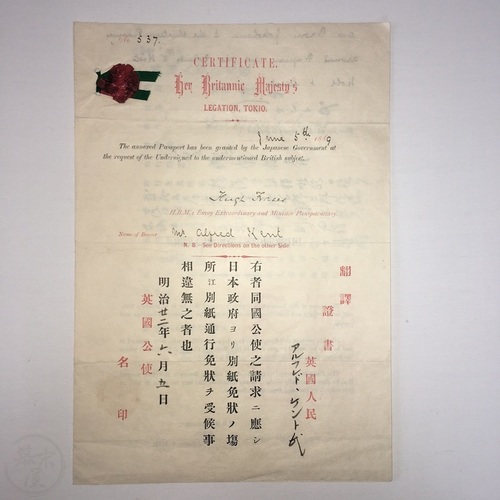 537.
CERTIFICATE.
Her Britannic Majesty's
LEGATION, TOKIO.
June 5th 1889
The annexed Passport has been granted by the Japanese Government at
the request of the Undersigned to the undermentioned British subject.
Hugh Fraser
H.B.M.'s Envoy Extraordinary and Minister Plenipotentiary.
Name of Bearer Mr Alfred Kent
N. B. See Directions on the other Side.
翻譯
證書
英國人民
アルフレド・ケント氏
右者同國公使之請求ニ應シ
日本政府ヨリ別紙免狀ノ場
所江別紙通行免狀ヲ受候事
相違無之者也
明治廿二年六月五日
英國公使
名印